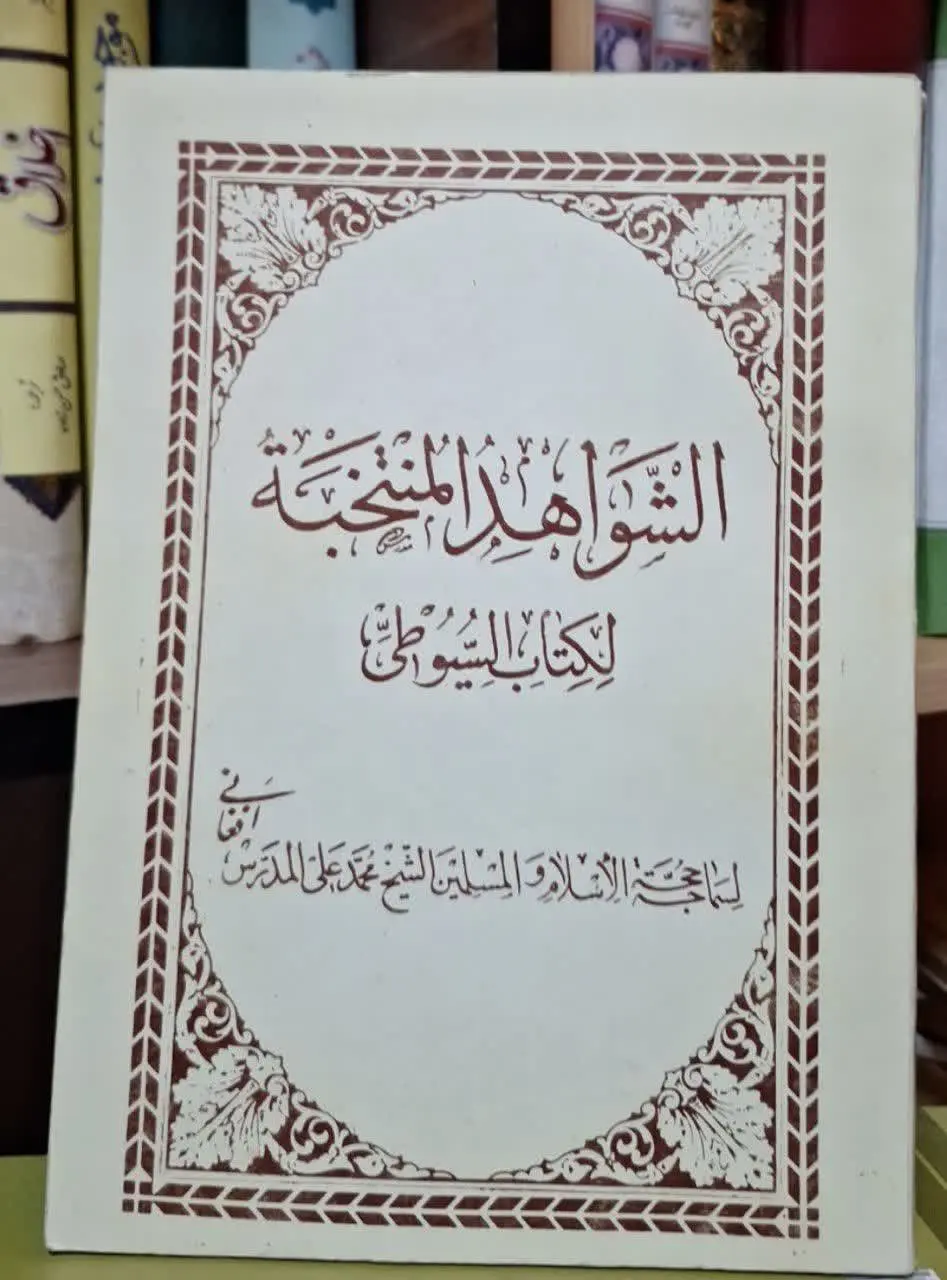 الشَّوَاهِدُ المُنْتَخَبَةُ
لِكِتَابِ السُّيُوطِيِّ
لِسَمَاحَةِ حُجَّةِ الْإِسْلَامِ وَ الْمُسْلِمِينَ الشَّيْخ مُحَمَّد عَلِي الْمُدَرِّس
افغانی
اخلاق